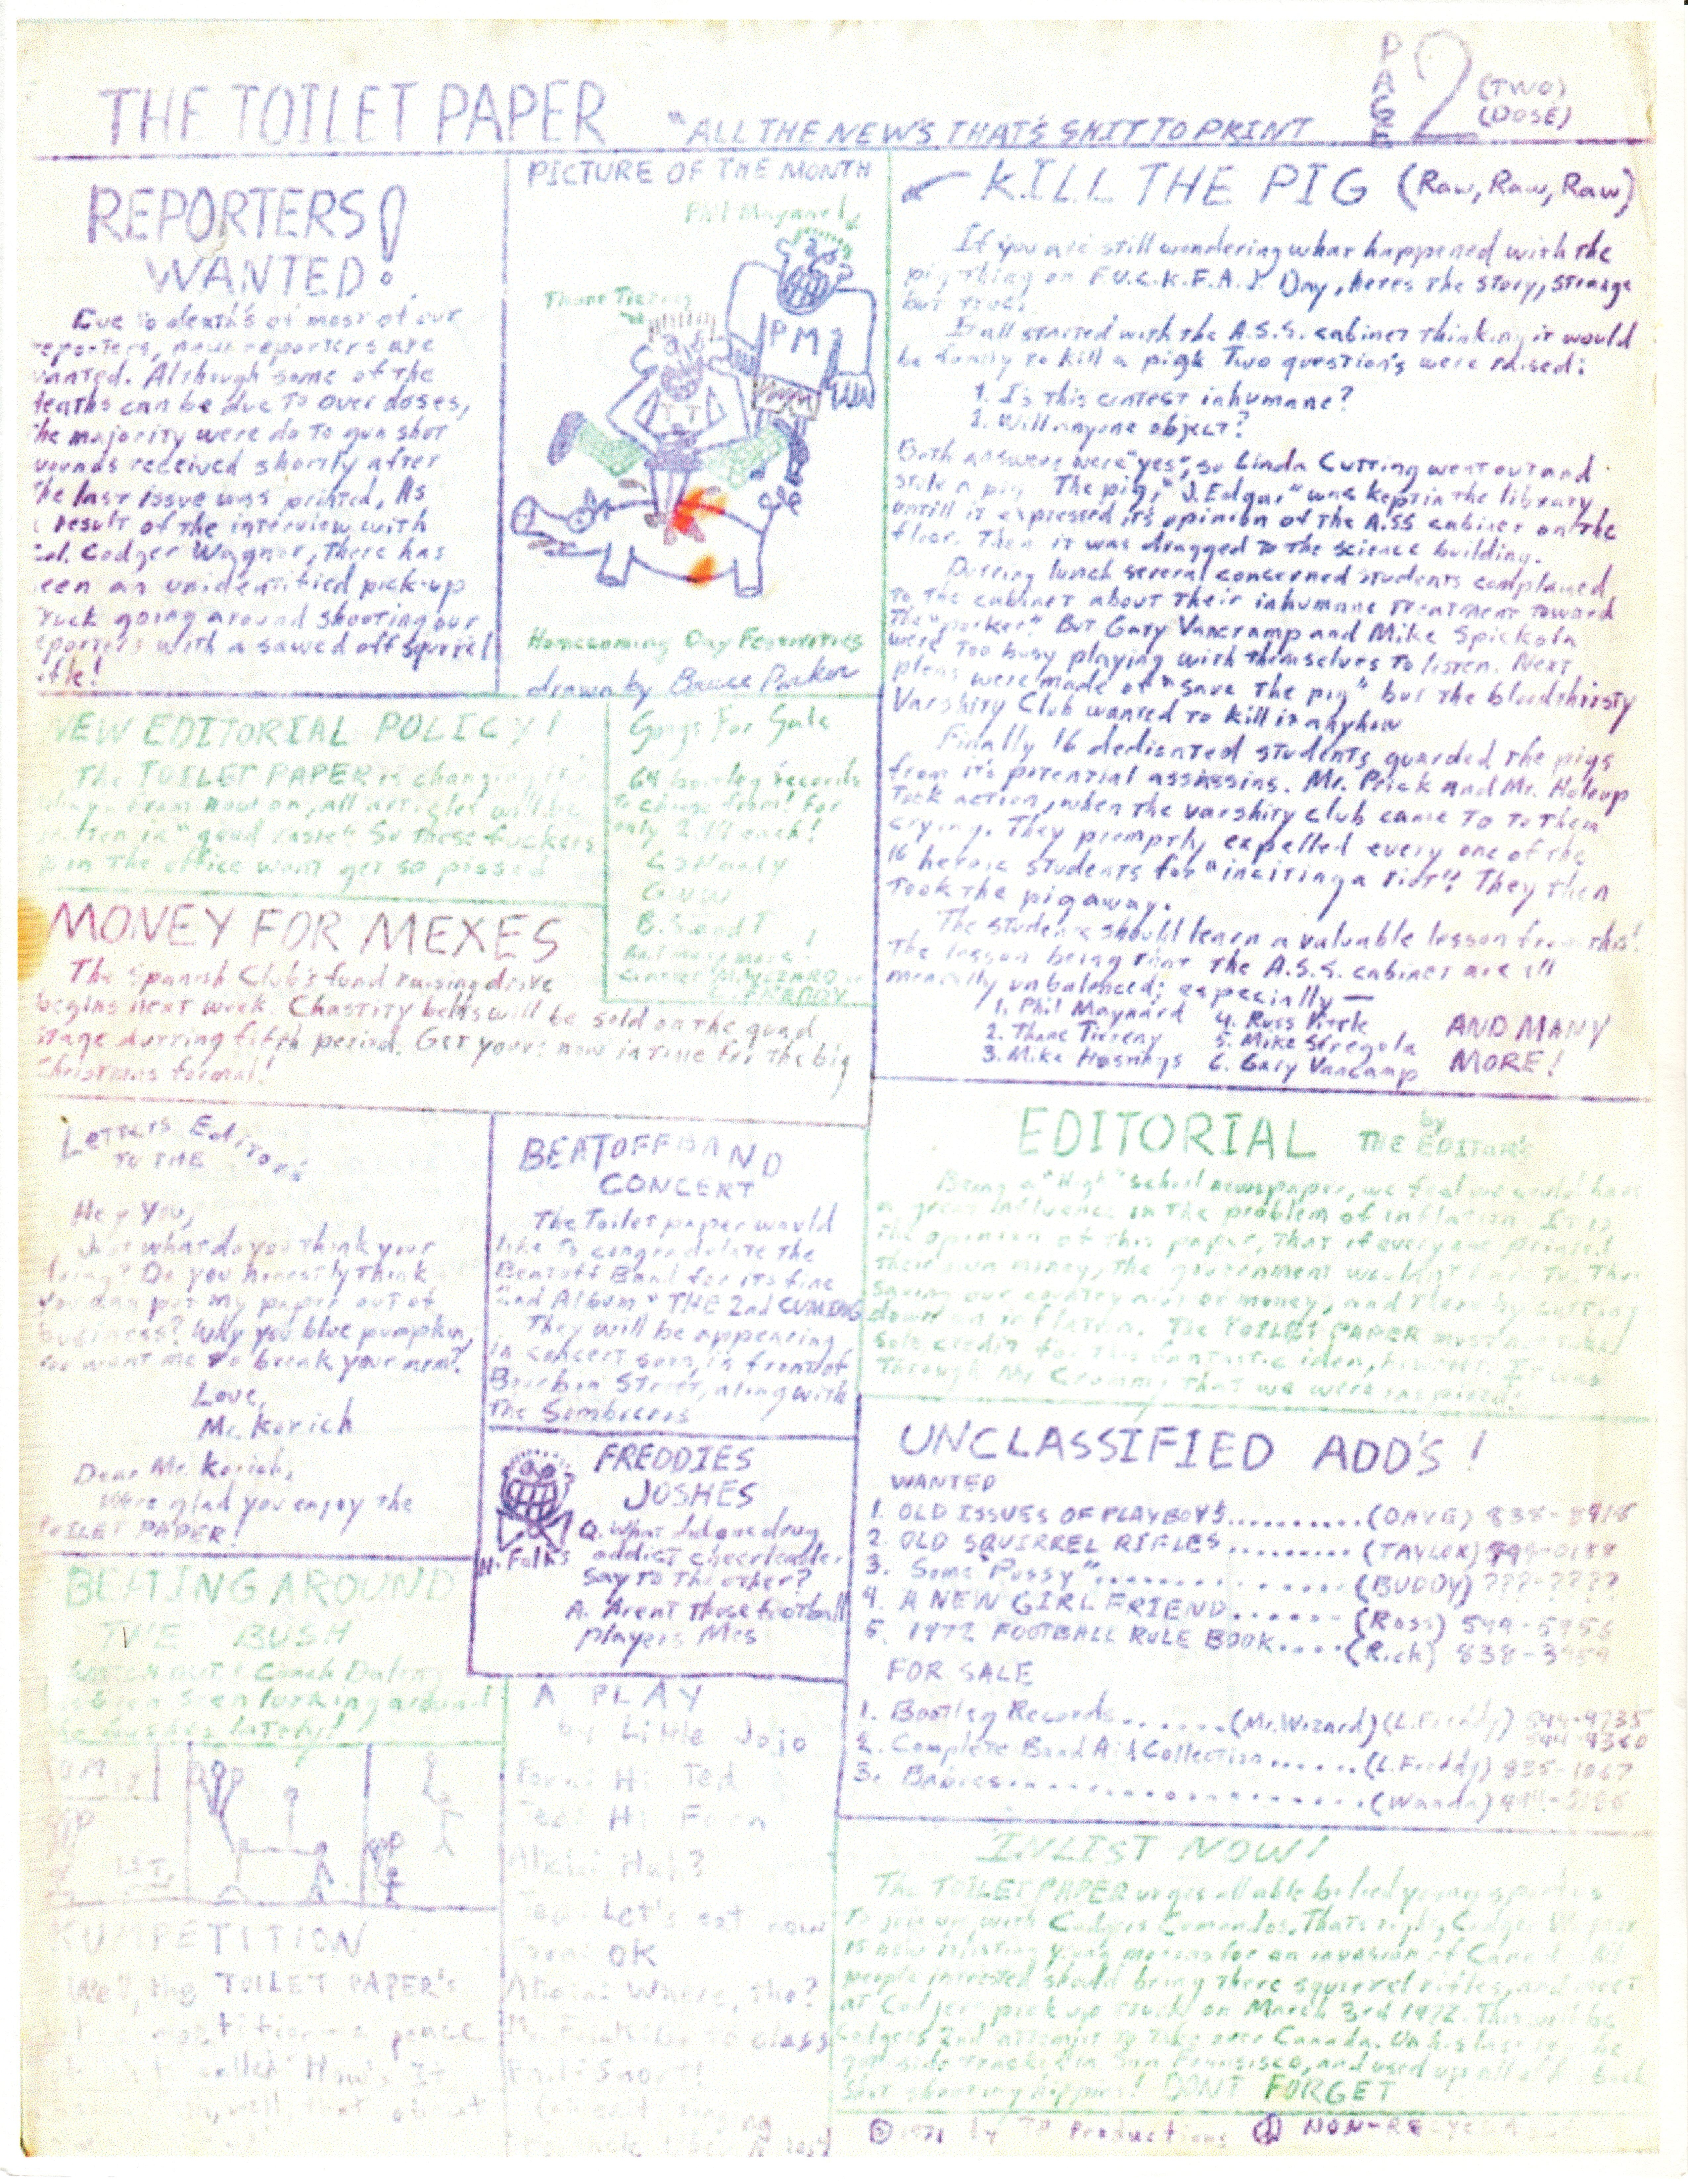 THE TOILET PAPER
"ALL THE NEWS THAT'S SHIT TO PRINT
PAGE 2 (TWO)
(DOSE)
REPORTERS
WANTED!
Due to death's of most of our
reporters, new reporters are
wanted. Although some of the
deaths can be due to over doses,
the majority were do to gun shot
wounds received shortly after
the last issue was printed. As
a result of the interview with
Col. Codger Wagnor, there has
been an unidentified pick-up
truck going around shooting our
reporters with a sawed off squirel
rifle!
PICTURE OF THE MONTH
Phil Maynard
Thane Tiereny
PM
TT
Homecoming Day Festivities
drawn by Bruce Parker
KILL THE PIG (Raw, Raw, Raw)
If you are still wondering what happened with the
pig thing on F.U.C.K.F.A.J. Day, heres the story, strange
but true.
It all started with the A.S.S. cabinet thinking it would
be funny to kill a pig. Two question's were raised:
1. Is this contest inhumane?
2. Will anyone object?
Both answers were "yes", so Linda Cutting went out and
stole a pig. The pig, "J. Edgar" was kept in the library
untill it expressed its opinion of the A.SS cabinet on the
floor. Then it was dragged to the science building.
Durring lunch several concerned students complained
to the cabinet about their inhumane treatment toward
the "porker". But Gary Vancramp and Mike Spickola
were too busy playing with themselves to listen. Next
pleas were made of "save the pig" but the bloodthirsty
Varshity Club wanted to kill it anyhow
Finally 16 dedicated students guarded the pigs
from it's potential assassins. Mr. Prick and Mr. Holeup
took action, when the varshity club came to to them
crying. They promptly expelled every one of the
16 heroic students for "inciting a riot". They then
took the pig away.
The students should learn a valuable lesson from this!
The lesson being that the A.S.S. cabinet are all
mentally unbalanced; especially —
1. Phil Maynard
2. Thane Tiereny
3. Mike
4. Russ
5. Mike Stregola
6. Gary Vancamp
AND MANY
MORE!
NEW EDITORIAL POLICY!
The TOILET PAPER is changing it's
ways. From now on, all articles will be
written in "good taste" So those fuckers
in the office wont get so pissed
Songs For Sale
64 bootleg records
to choose from! For
only each!
B.S. and T
And many more!
MONEY FOR MEXES
The Spanish Club's fund raising drive
begins next week. Chastity belts will be sold on the quad
stage durring fifth period. Get yours now in time for the big
Christmas formal!
Letters TO THE Editors
Hey You,
Just what do you think your
doing? Do you honestly think
you can put my paper out of
business? Why you blue pumpkin,
you want me to break your arm?
Love,
Mr. Korich
Dear Mr. Korich,
Were glad you enjoy the
TOILET PAPER!
BEATOFF BAND
CONCERT
The Toilet paper would
like to congradulate the
Beatoff Band for its fine
2nd Album "THE 2nd CUMING
They will be appearing
in concert soon, in front of
Bourbon Street, along with
the Sombreros
EDITORIAL by THE EDITOR'S
Being a "High" school newspaper, we feel we could have
a great influence in the problem of inflation. It is
the opinion of this paper, that if every one printed
their own money, the government wouldn't have to. Thus
saving our country alot of money, and there by cutting
down on inflation. The TOILET PAPER must not take
sole credit for this fantastic idea, however. It was
through Mr. Crummy that we were inspired!
FREDDIES
JOSHES
H. Falk's
Q. What did one drug
addict cheerleader
say to the other?
A. Aren't those football
players Mes
UNCLASSIFIED ADD'S!
WANTED
1. OLD ISSUES OF PLAYBOYS..........(DAVE) 838-8918
2. OLD SQUIRREL RIFLES.........(TAYLOR)
3. Some "Pussy"..............(BUDDY) ???-????
4. A NEW GIRL FRIEND......(Ross) 549-5956
5. 1972 FOOTBALL RULE BOOK....(Rich) 838-3959
FOR SALE
1. Bootleg Records......(Mr. Wizard)(L. Freddy) 544-9735
544-9360
2. Complete Band Aid Collection......(L. Freddy) 835-1067
3. Babies..............(Wanda)
BEATING AROUND
THE BUSH
WATCH OUT! Coach Daley
has been seen lurking around
the bushes lately!
KUMPETITION
Well, the TOILET PAPER'S
got
called: How's It
well, that about
A PLAY
by Little Jojo
Forn: Hi Ted
Ted: Hi Forn
Alicia: Huh?
Ted: Let's eat now
Forn: OK
Alicia: Where, tho?
to class
INLIST NOW!
The TOILET PAPER urges all able bodied young
to join up with Codgers Comandos. Thats right, Codger
is now inlisting young morons for an invasion of Canada. All
people intrested should bring there squirrel rifles, and meet
at Codjers pick up truck, on March 3rd 1972. This will be
Codgers 2nd attempt to take over Canada. On his last try he
got side tracked in San Fransisco, and used up all of
shot shooting hippies! DONT FORGET
© 1971 by TP Productions ☮ NON-RECYCLA